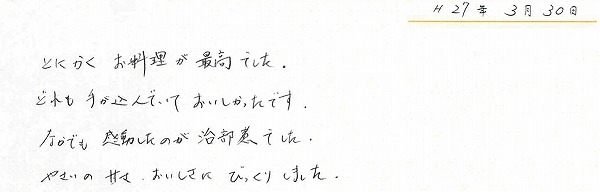 H 27 年 3月 30日
とにかく お料理が 最高でした.
どれも 手が込んでいて おいしかったです.
なかでも 感動したのが 治部煮でした.
やさいの 甘さ、おいしさに びっくりしました.